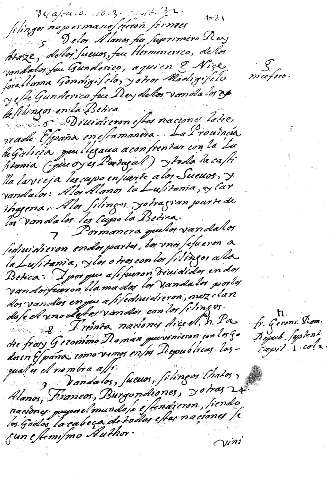 silingos no permanesçieron firmes
5 De los Alanos fue su primero Rey
Atace, de los sueuos, fue Hermenerico, de los
vandalos fue Gunderico, a quien
forallama Gondigisclo, y otros Modigisclo
y este Gunderico fue Rey de los vandalos
silingos en la Betica
6 Diuidieron estas naciones la tie
rra de España en esta manera. La Prouincia
de Galicia que llegaua a confrentar con la Lu
sitania (que oy es Portugal) y toda la casti
lla la vieja les cupo en suerte a los Sueuos, y
vandalos. A los Alanos la Lusitania, y car
thagena. A los silingos y otras gran parte de
los vandalos les cupo la Betica.
7 Por manera que los vandalos
se diuidieron en dos partes, los vnos se fueron a
la Lusitania, y los otros con los silingos a la
Betica. Y por que assi fueron diuididos en dos
vandos fueron llamados los vandalos por los
dos vandos en que assi se diuidieron, mezclan
dose el vno de los vandos con los silingos.
8 Treinta naciones dize el Pa
dre fray Geronimo Roman que vinieron
en España como vemos en sus Republicas, los
quales el nombra assi.
Vandalos, sueuos, silingos, chatos,
Alanos, Francos, Burgundiones, y otras 24
naciones que por el mundo se estendieron, siendo
los Godos la cabeça de todas estas naciones se
gun este mismo Author.
vini
fr. Geron. Rom.
Repub. septent.
Capit. 1. cola.